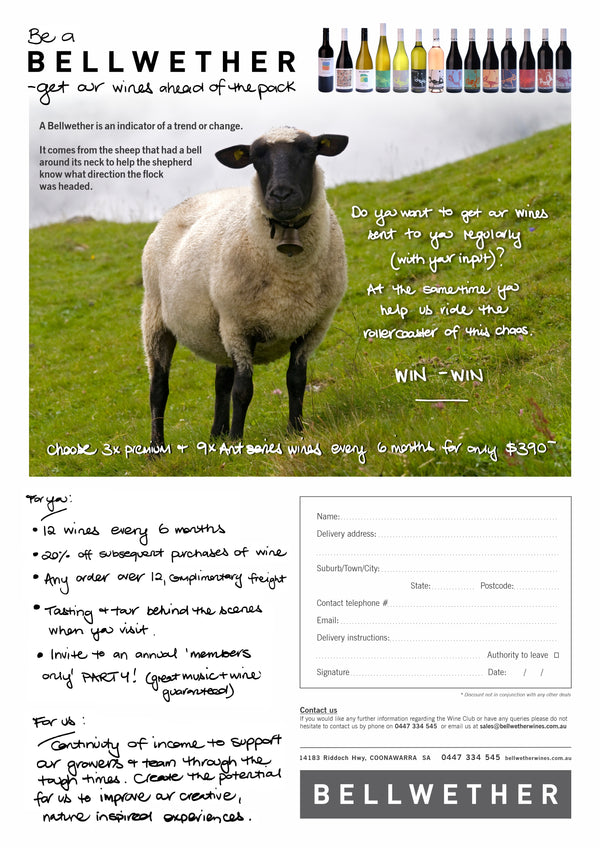 Be a
BELLWETHER
-get our wines ahead of the pack
A Bellwether is an indicator of a trend or change.
It comes from the sheep that had a bell
around its neck to help the shepherd
know what direction the flock
was headed.
Do you want to get our wines
sent to you regularly
(with your input)?
At the same time you
help us ride the
rollercoaster of this chaos.
WIN - WIN
Choose 3x premium + 9x Ant series wines every 6 months for only $390-
For you:
• 12 wines every 6 months
• 20% off subsequent purchases of wine
• Any order over 12, complimentary freight
• Tasting + tour behind the scenes
when you visit.
• Invite to an annual 'members
only' PARTY! (great music + wine
guaranteed)
For us:
Continuity of income to support
our growers + team through the
tough times. Create the potential
for us to improve our creative,
nature inspired experiences.
Name:
Delivery address:
Suburb/Town/City:
State: Postcode:
Contact telephone #
Email:
Delivery instructions:
Authority to leave
Signature Date: / /
* Discount not in conjunction with any other deals
Contact us
If you would like any further information regarding the Wine Club or have any queries please do not
hesitate to contact us by phone on 0447 334 545 or email us at sales@bellwetherwines.com.au
14183 Riddoch Hwy, COONAWARRA SA 0447 334 545 bellwetherwines.com.au
BELLWETHER